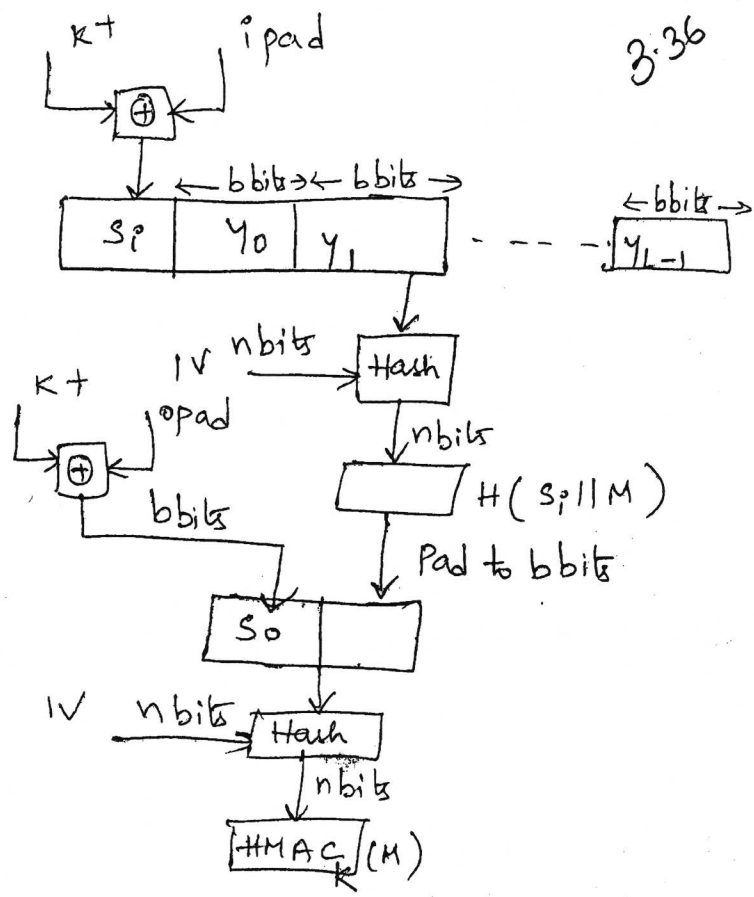 K+ ipad 3.36
⊕
← b bits → ← b bits → ← bbits →
Si Y0 Y1 - - - - YL-1
IV nbits Hash
K+ opad
nbits
⊕
H(Si||M)
bbits
Pad to bbits
So
IV nbits Hash
nbits
HMACK(M)